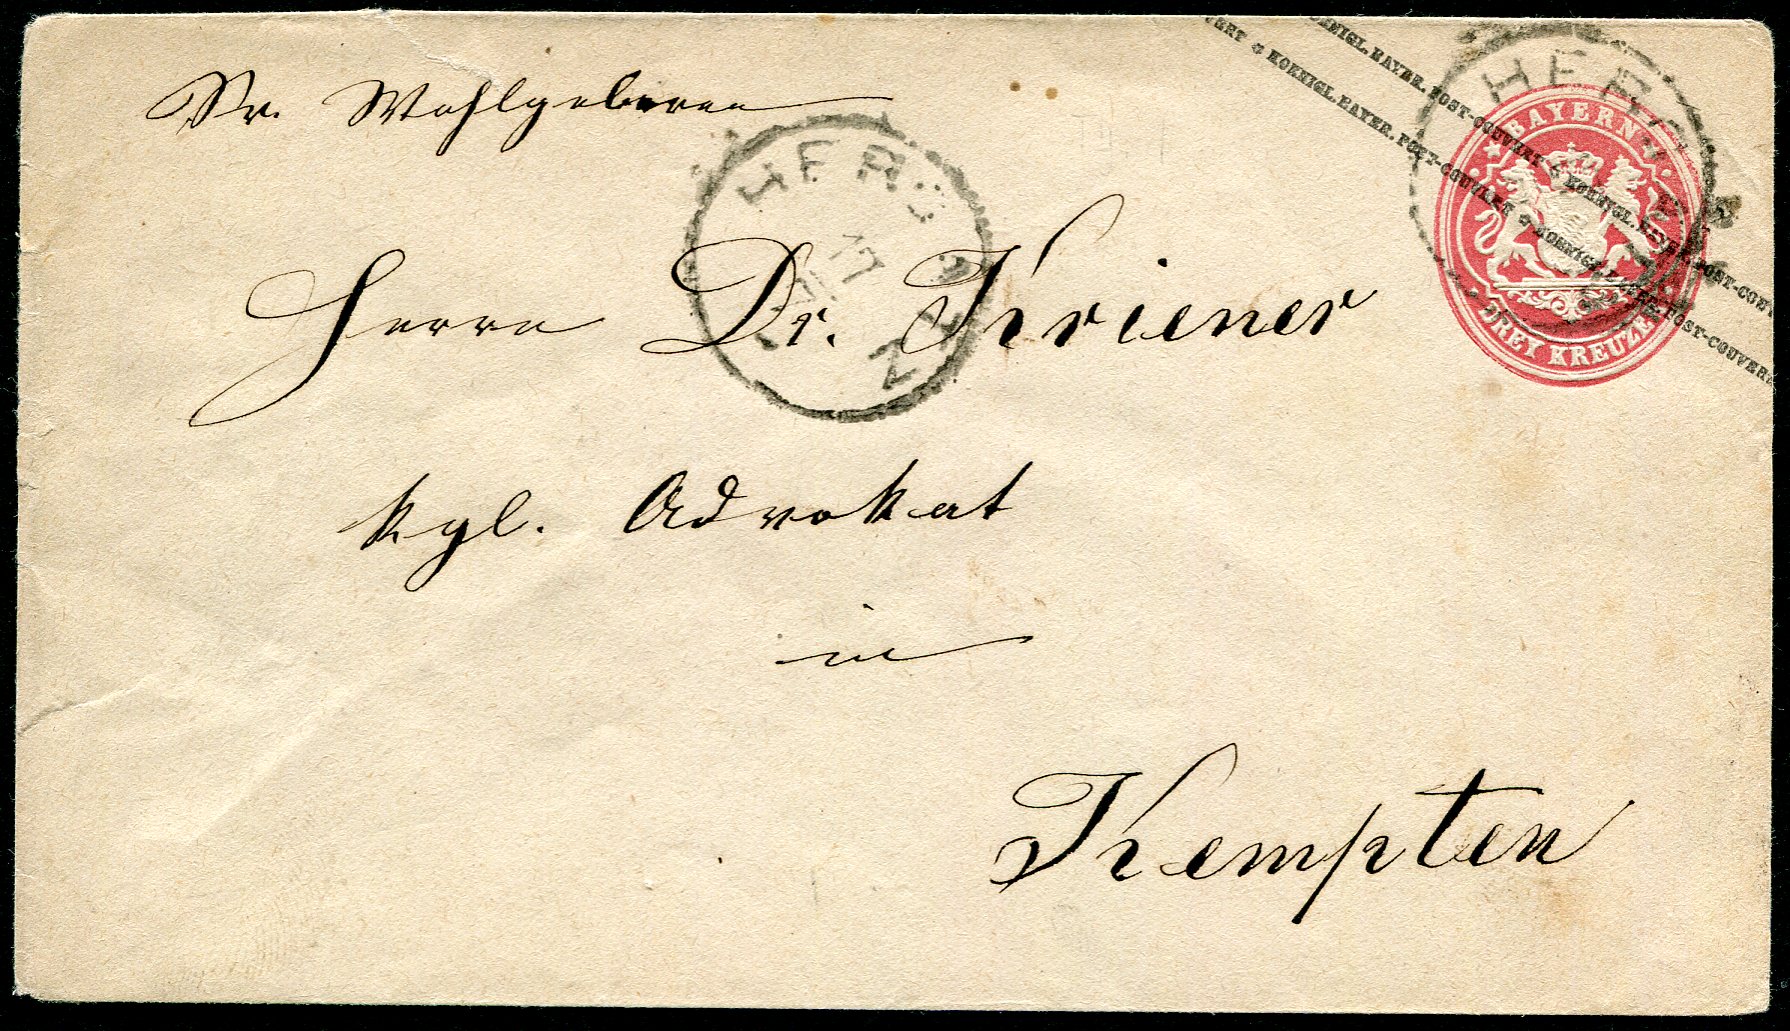 Sr. Wohlgeboren
Herrn Dr. Kriener
kgl. Advokat
in
Kempten
BAYERN
DREY KREUZER
KOENIGL. BAYER. POST-COUVERT KOENIGL. BAYER. POST-COUVERT
KOENIGL. BAYER. POST-COUVERT KOENIGL. BAYER. POST-COUVERT
17